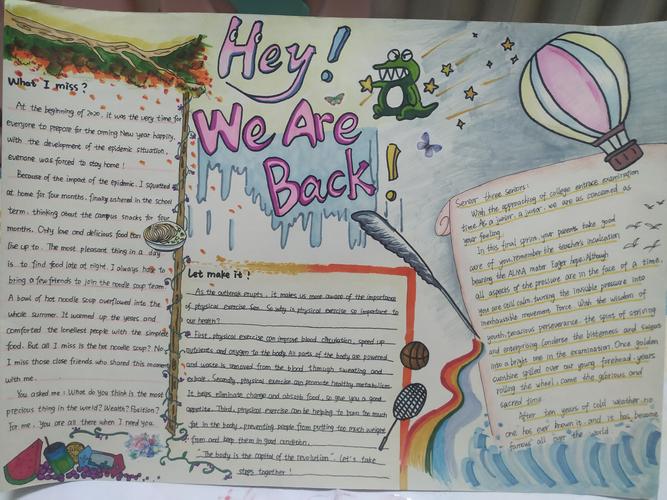 Hey!
We Are
Back!
What I miss?
At the beginning of 2020, it was the very time for
everyone to prepare for the coming New year happily,
with the development of the epidemic situation,
everyone was forced to stay home!
Because of the impact of the epidemic, I squatted
at home for four months, finally ushered in the school
term, thinking about the campus snacks for four
months. Only love and delicious food can
live up to. The most pleasant thing in a day
is to find food late at night. I always love to
bring a few friends to join the noodle soup team.
A bowl of hot noodle soup overflowed into the
whole summer. It warmed up the years and
comforted the loneliest people with the simplest
food. But all I miss is the hot noodle soup? No,
I miss those close friends who shared this moment
with me.
You asked me: What do you think is the most
precious thing in the world? Wealth? Position?
For me, you are all there when I need you.
Let make it!
As the outbreak erupts, it makes us more aware of the importance
of physical exercise. So why is physical exercise so important to
our health?
First, physical exercise can improve blood circulation, speed up
nutrients and oxygen to the body. All parts of the body are powered
and waste is removed from the blood through sweating and
exhale. Secondly, physical exercise can promote healthy metabolism.
It helps eliminate change and absorb food, so give you a good
appetite. Third, physical exercise can be helping to burn too much
fat in the body, preventing people from putting too much weight
from and keep them in good condition.
"The body is the capital of the revolution". Let's take
steps together!
Senior three seniors:
With the approaching of college entrance examination
time. As a junior, a junior we are as concerned as
your feeling.
In this final sprin your parents take good
care of you, remember the teacher's inculcation
bearing the ALMA mater Eager hope. Although
all aspects of the pressure are in the face of a time.
you are still calm, turning the invisible pressure into
inexhaustible movement. Force. With the wisdom of
youth, tenacious perseverance, the spirit of striving
and enterprising. Condense the bitterness and sweat
into a bright one in the examination. Once golden
sunshine spilled over our young forehead. years
rolling the wheel, came the glorious and
sacred time
After ten years of cold weather, no
one has ever known it, and is has become
famous all over the world